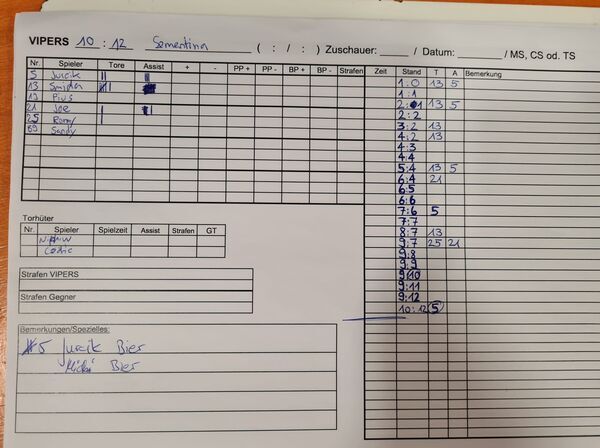 VIPERS 10 : 12 Sementina ( : / : ) Zuschauer: / Datum: / MS, CS od. TS
Nr. Spieler Tore Assist + - PP + PP - BP + BP - Strafen Zeit Stand T A Bemerkung
5 Jurcik
13
17 Pius
21 Joe
25 Remy
89 Sandy
1:0 13 5
1:1
2:1 13 5
2:2
3:2 13
4:2 13
4:3
4:4
5:4 13 5
6:4 21
6:5
6:6
7:6 5
7:7
8:7 13
9:7 25 21
9:8
9:9
9:10
9:11
9:12
10:12 5
Torhüter
Nr. Spieler Spielzeit Assist Strafen GT
Cédric
Strafen VIPERS
Strafen Gegner
Bemerkungen/Spezielles:
#5 Jurcik Bier
Bier